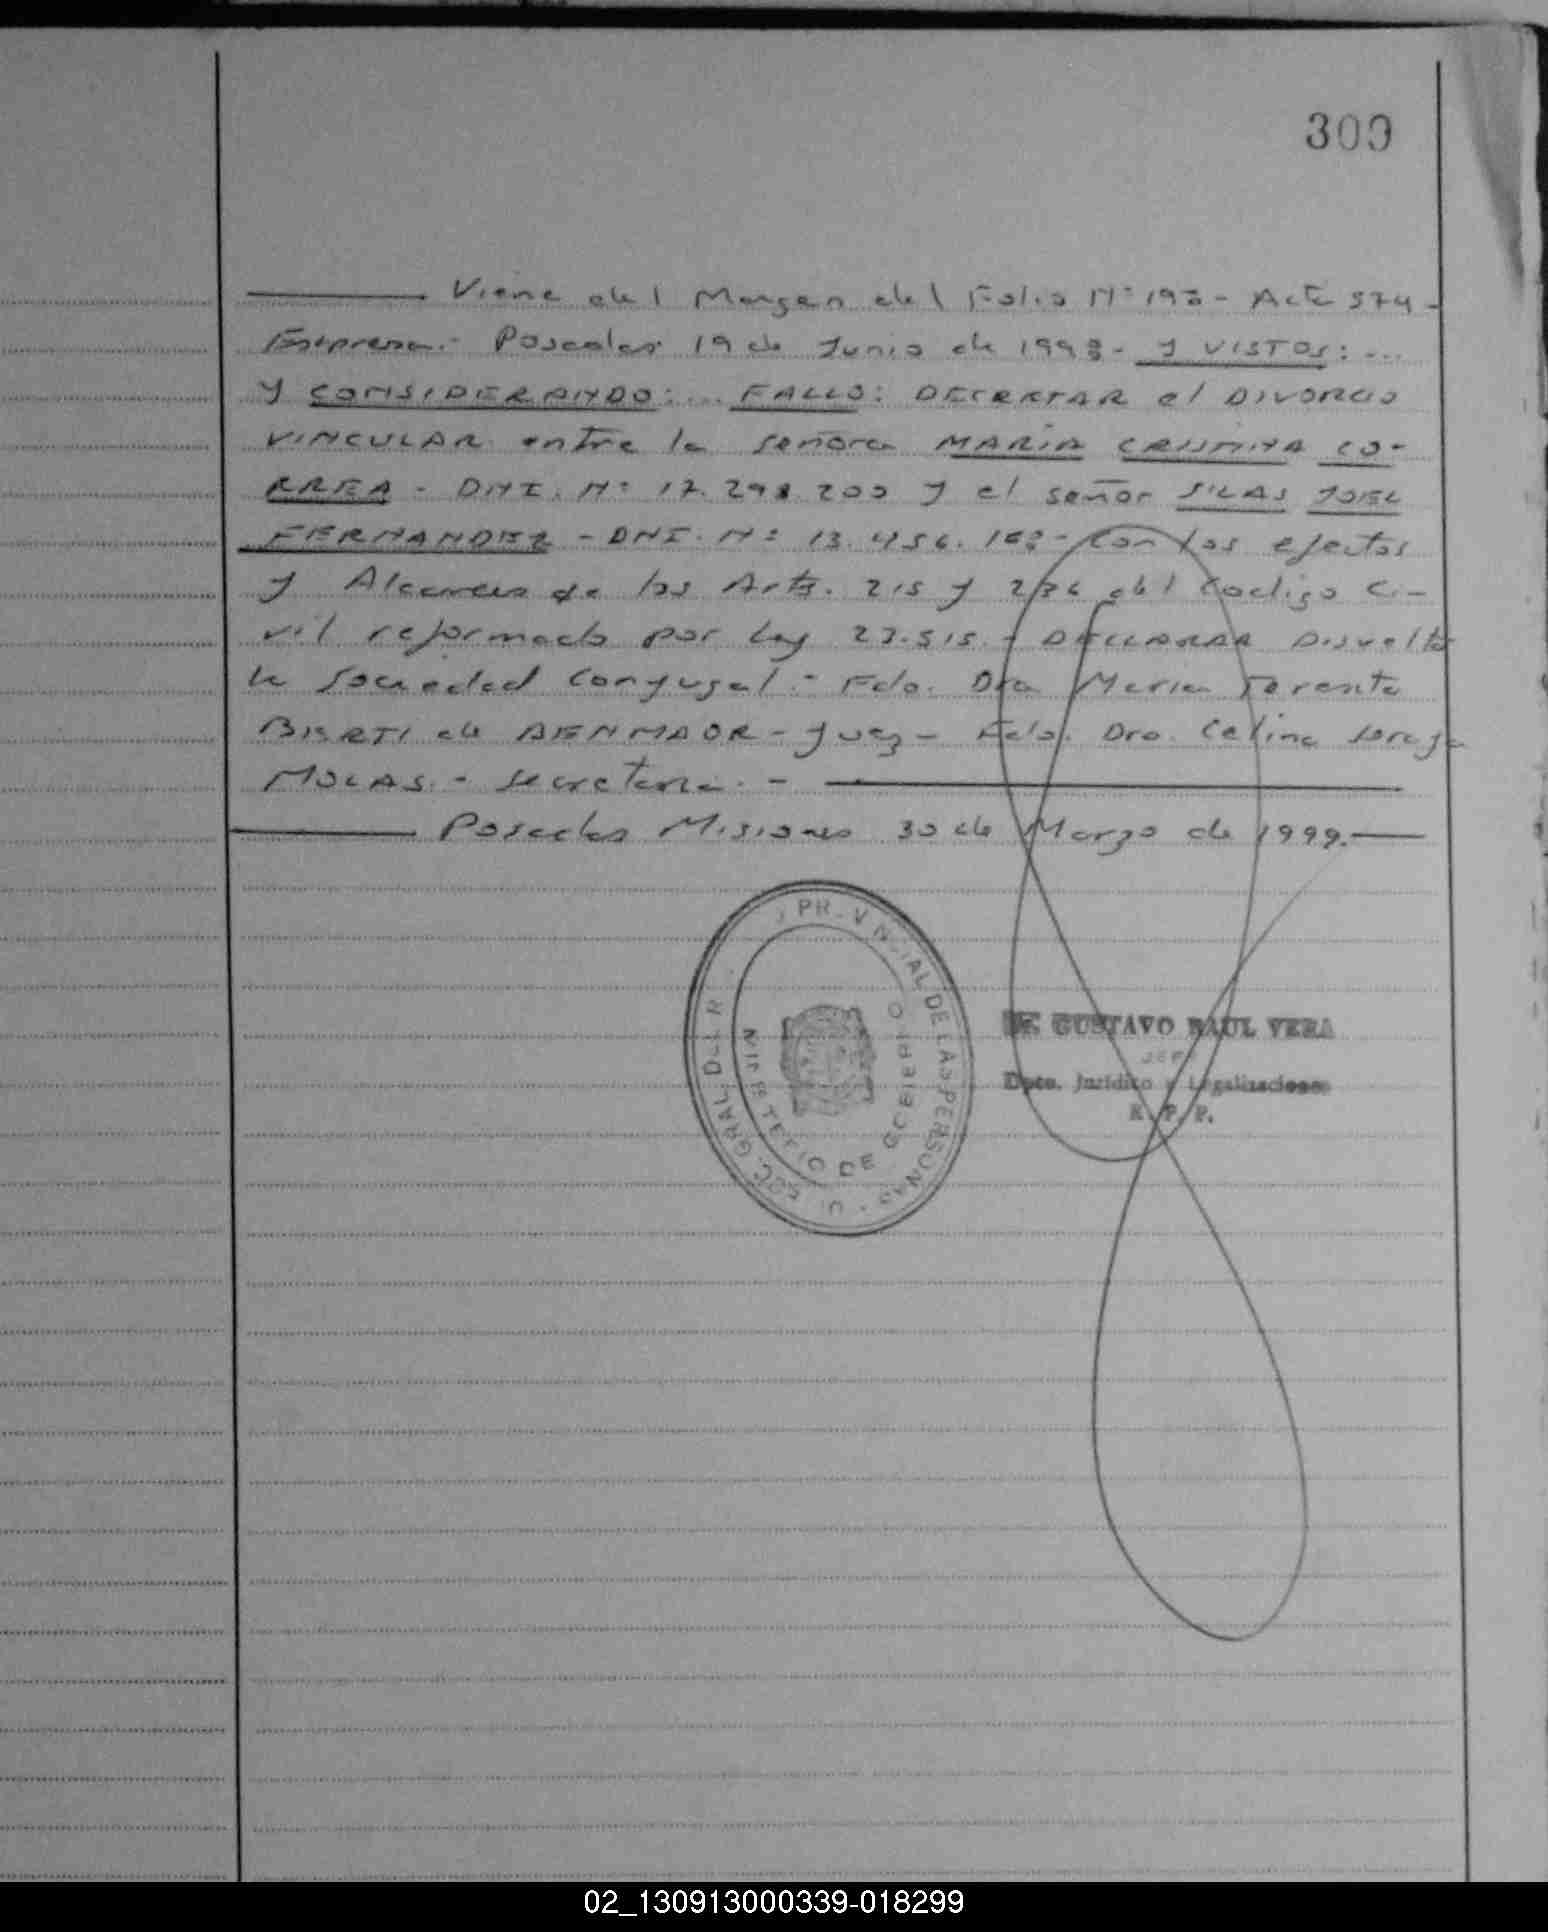 309
Viene del Margen del Folio Nº 193 - Acta 374 -
Expresa.- Posadas 19 de Junio de 1998 - Y VISTOS: ...
Y CONSIDERANDO: ... FALLO: DECRETAR el DIVORCIO
VINCULAR entre la señora MARIA CRISTINA CO-
RREA - DNI. Nº 17.298.200 y el señor SILAS JOEL
FERNANDEZ - DNI. Nº 13.456. - con los efectos
y Alcances de los Arts. 215 y 236 del Codigo Ci-
vil reformado por Ley 23.515. - DECLARAR Disuelta
la Sociedad Conyugal.- Fdo. Dra Maria Teresita
de - Juez - Fdo. Dra. Celina
MOLAS. - Secretaria. -
Posadas Misiones 30 de Marzo de 1999.
PROVINCIAL DE LAS PERSONAS
MINISTERIO DE GOBIERNO
Dr. GUSTAVO RAUL VERA
JEFE
Dpto. Jurídico y Legalizaciones
R. P. P.
02_130913000339-018299